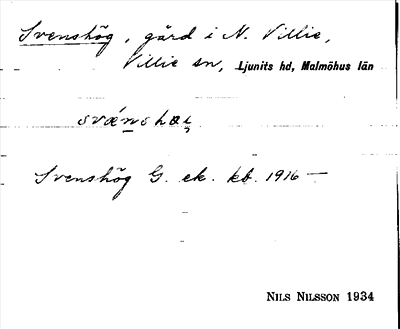 Svenshög, gård i N. Villie,
Villie sn, Ljunits hd, Malmöhus län
Svenshög G. ek. kb. 1916 —
NILS NILSSON 1934